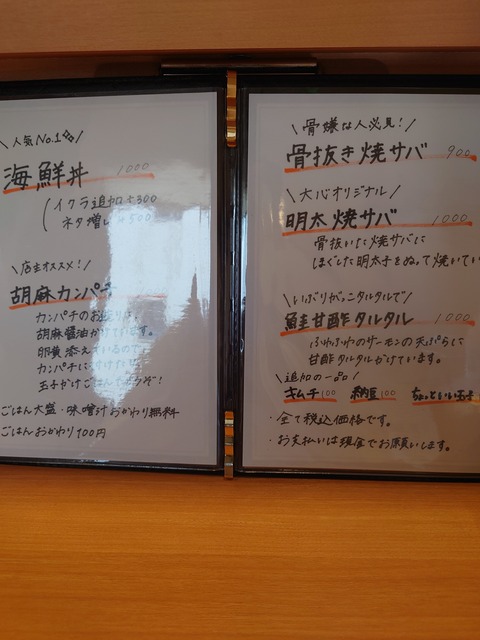 \人気No.1/
海鮮丼 1000
(イクラ追加+300
ネタ増し+500
\店主オススメ!/
胡麻カンパチ
カンパチのお造りに
胡麻醤油かけています。
卵黄添えているので
カンパチに
玉子かけごはんでどうぞ!
ごはん大盛・味噌汁おかわり無料
ごはんおかわり100円
\骨嫌な人必見!/
骨抜き焼サバ 900
\大心オリジナル/
明太焼サバ 1000
骨抜いた焼サバに
ほぐした明太子をぬって焼いてい
\いぶりがっこタルタルで/
鮭甘酢タルタル 1000
ふわふわのサーモンの天ぷらに
甘酢タルタルかけています。
\追加の一品/
キムチ100 納豆100 ちょっといい玉子
・全て税込価格です。
・お支払いは現金でお願いします。